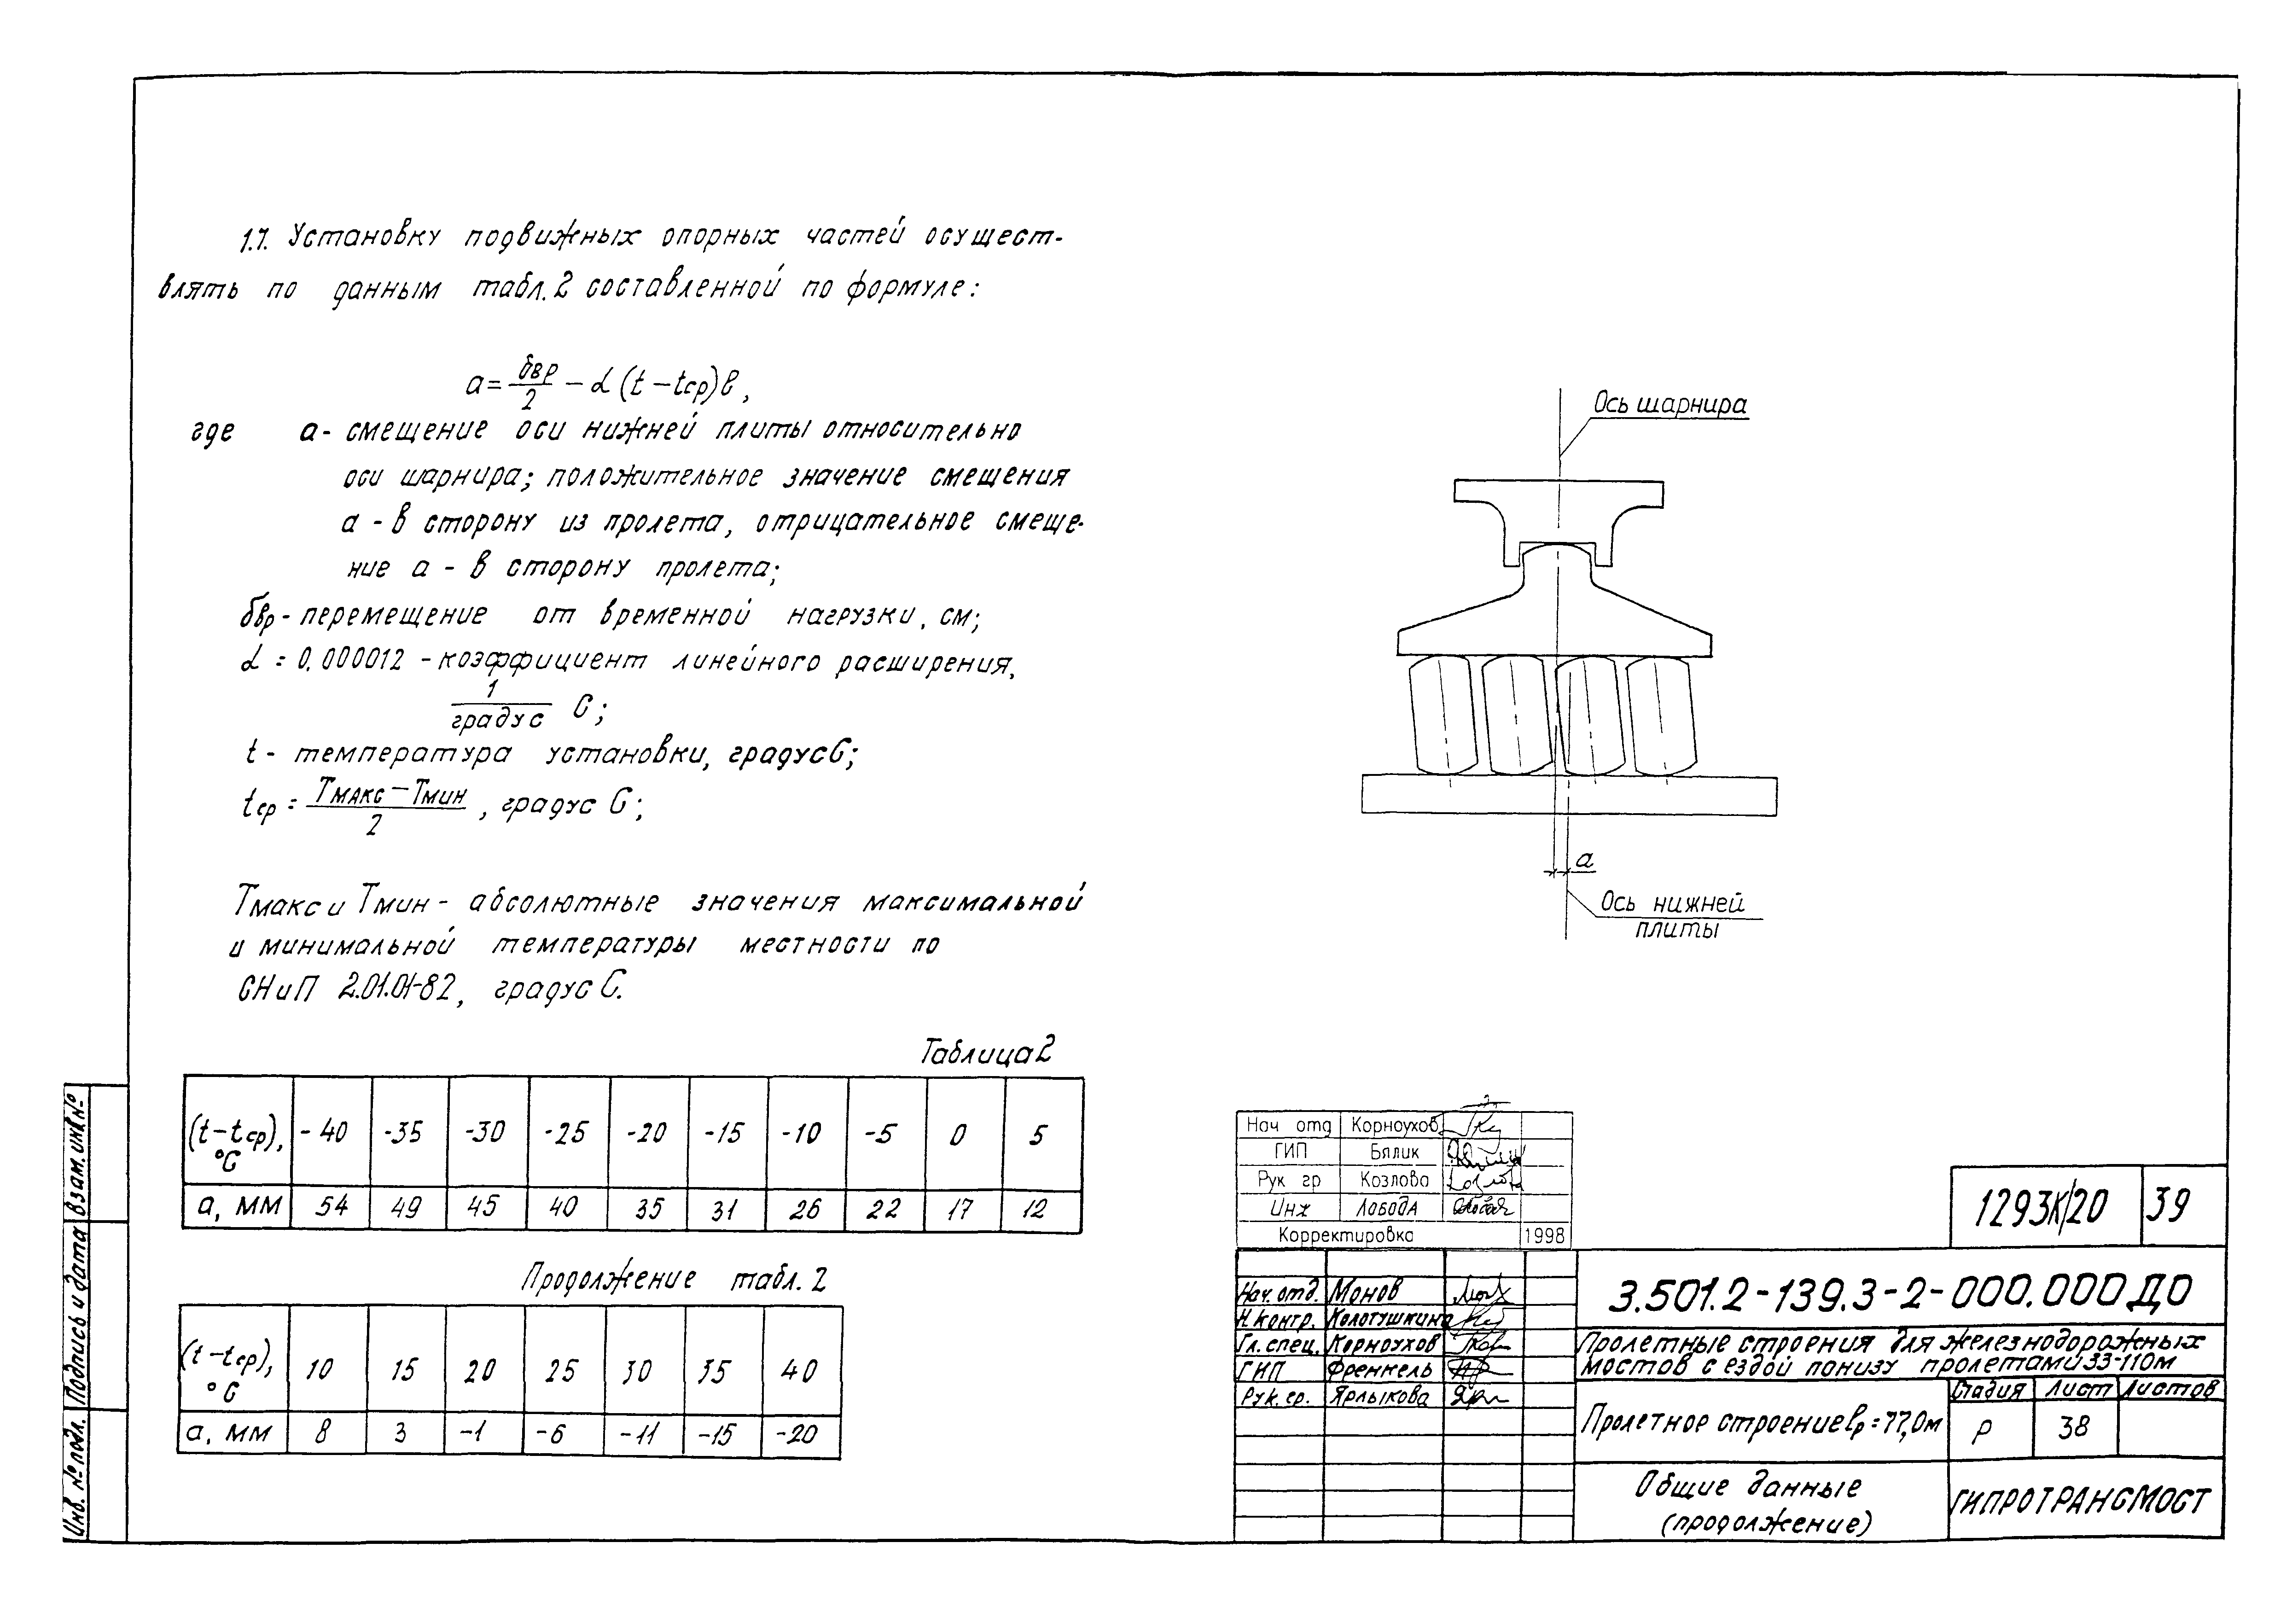 1.7. Установку подвижных опорных частей осущест-
влять по данным табл.2 составленной по формуле:
a = δвр/2 − α (t − tср) ℓ,
где а- смещение оси нижней плиты относительно
оси шарнира; положительное значение смещения
а - в сторону из пролета, отрицательное смеще-
ние а - в сторону пролета;
δвр - перемещение от временной нагрузки, см;
α = 0,000012 - коэффициент линейного расширения,
1/градус С;
t - температура установки, градус С;
tср = Тмакс − Тмин / 2 , градус С;
Тмакс и Тмин - абсолютные значения максимальной
и минимальной температуры местности по
СНиП 2.01.01-82, градус С.
Таблица 2
(t-tср), °С -40 -35 -30 -25 -20 -15 -10 -5 0 5
а, мм 54 49 45 40 35 31 26 22 17 12
Продолжение табл. 2
(t-tср), °С 10 15 20 25 30 35 40
а, мм 8 3 -1 -6 -11 -15 -20
Ось шарнира
а
Ось нижней
плиты
Нач отд Корноухов
ГИП Бялик
Рук гр Козлова
Инж Лобода
Корректировка 1998
1293К/20 39
Нач. отд. Монов
Н.контр. Колотушкина
Гл. спец. Корноухов
ГИП Френкель
Рук. гр. Ярлыкова
3.501.2-139.3-2-000.000 ДО
Пролетные строения для железнодорожных
мостов с ездой понизу пролетами 33-110м
Пролетное строение ℓр = 77,0м
Стадия Лист Листов
Р 38
Общие данные
(продолжение)
ГИПРОТРАНСМОСТ
Взам. инв №
Подпись и дата
Инв. № подл.